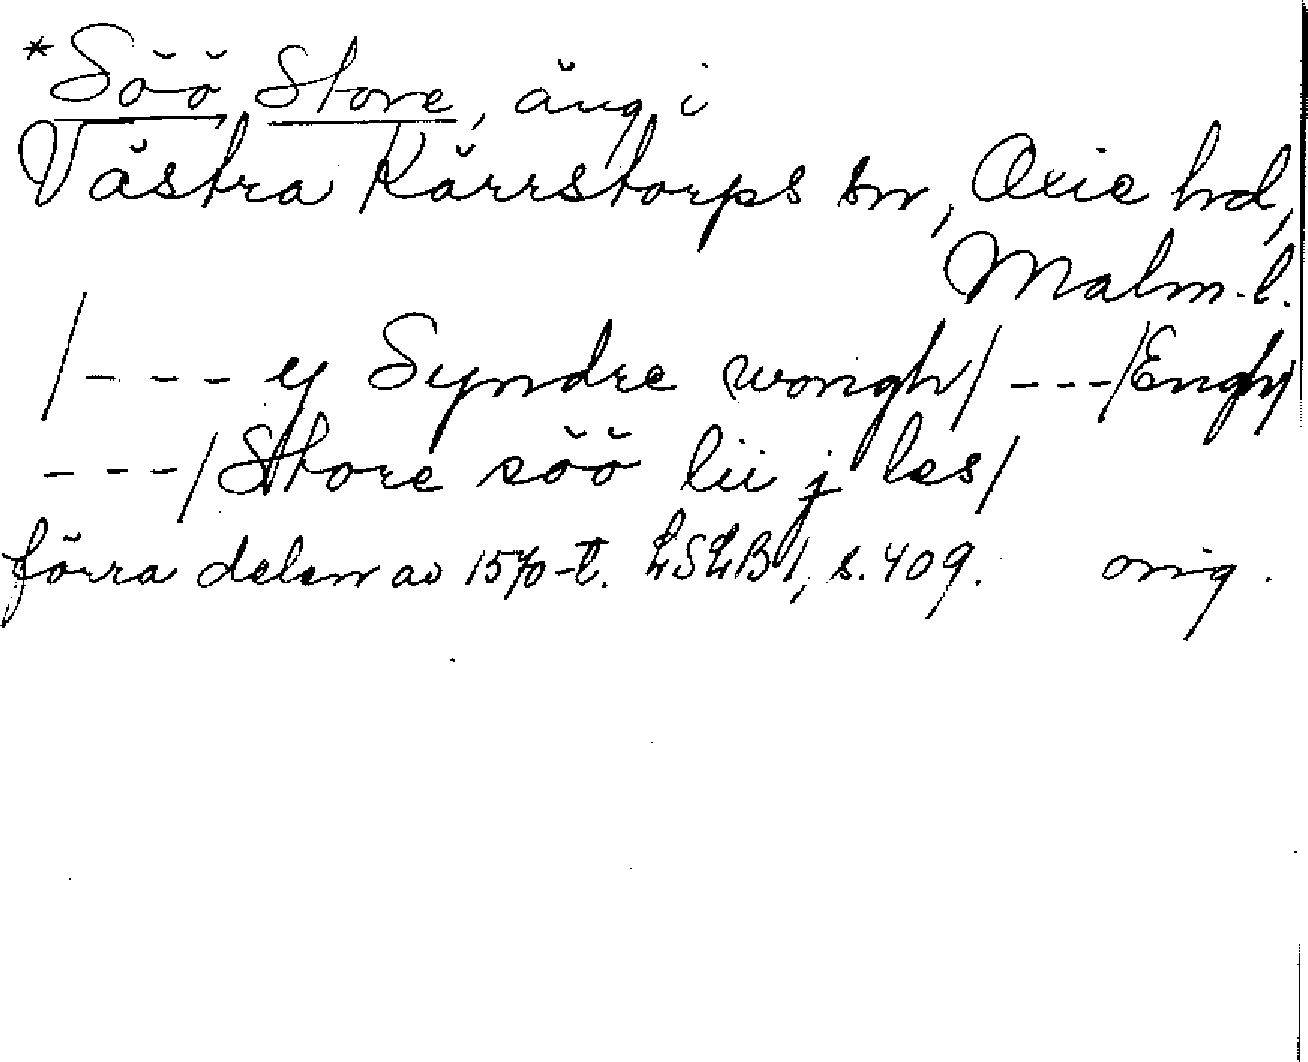 *Söö, Store, äng i
Västra Kärrstorps sn, Oxie hd,
Malm.l.
/--- ej Syndre wongh/ ---/Engh/
---/Store söö lii j les/
förra delen av 1570-t. LSLB 1, s. 409. orig.